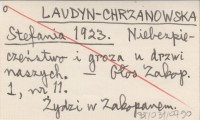 LAUDYN-CHRZANOWSKA
Stefania 1923. Niebezpie-
czeństwo i groza u drzwi
naszych. — Głos Zakop.
1, nr 11.
Żydzi w Zakopanem.